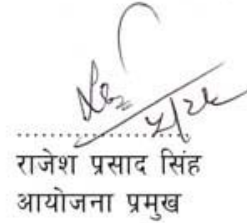 ....................
राजेश प्रसाद सिंह
आयोजना प्रमुख